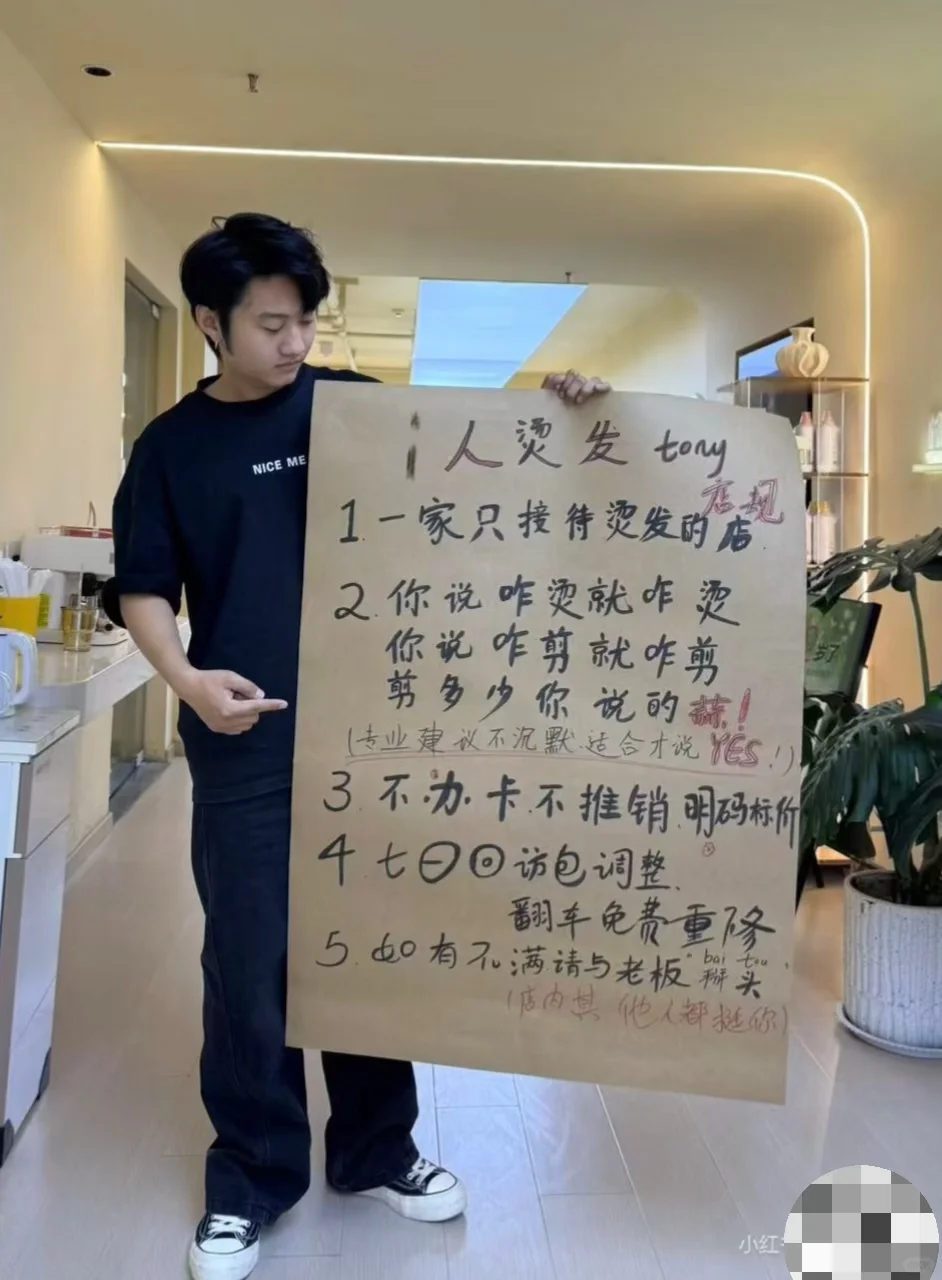 NICE ME
人烫发 tony
店规
1. 一家只接待烫发的店.
2. 你说咋烫就咋烫
你说咋剪就咋剪
剪多少你说的蒜!
(专业建议不沉默.适合才说YES!)
3. 不.办.卡.不推销.明码标价
4. 七日回访包调整.
翻车免费重修
5. 如有不满.请与老板"掰头"
bai tou
(店内其他人都挺你)
小红